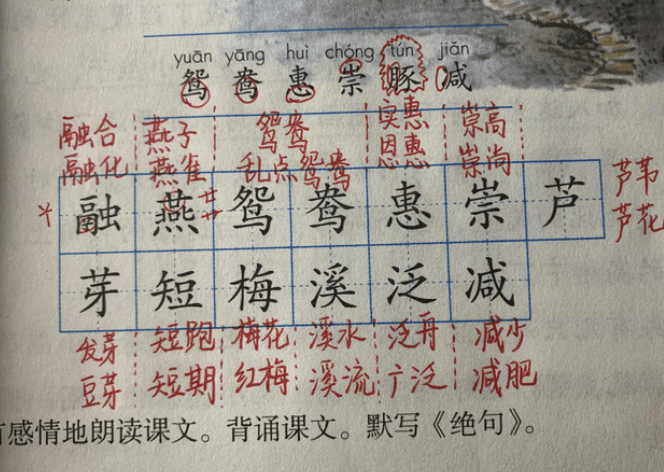 yuān yāng huì chóng tún jiǎn
鸳 鸯 惠 崇 豚 减
融合 燕子 鸳鸯 实惠 崇高
融化 燕雀 乱点鸳鸯 恩惠 崇尚
融 燕 鸳 鸯 惠 崇 芦 芦苇
芦花
芽 短 梅 溪 泛 减
发芽 短跑 梅花 溪水 泛舟 减少
豆芽 短期 红梅 溪流 广泛 减肥
有感情地朗读课文。背诵课文。默写《绝句》。